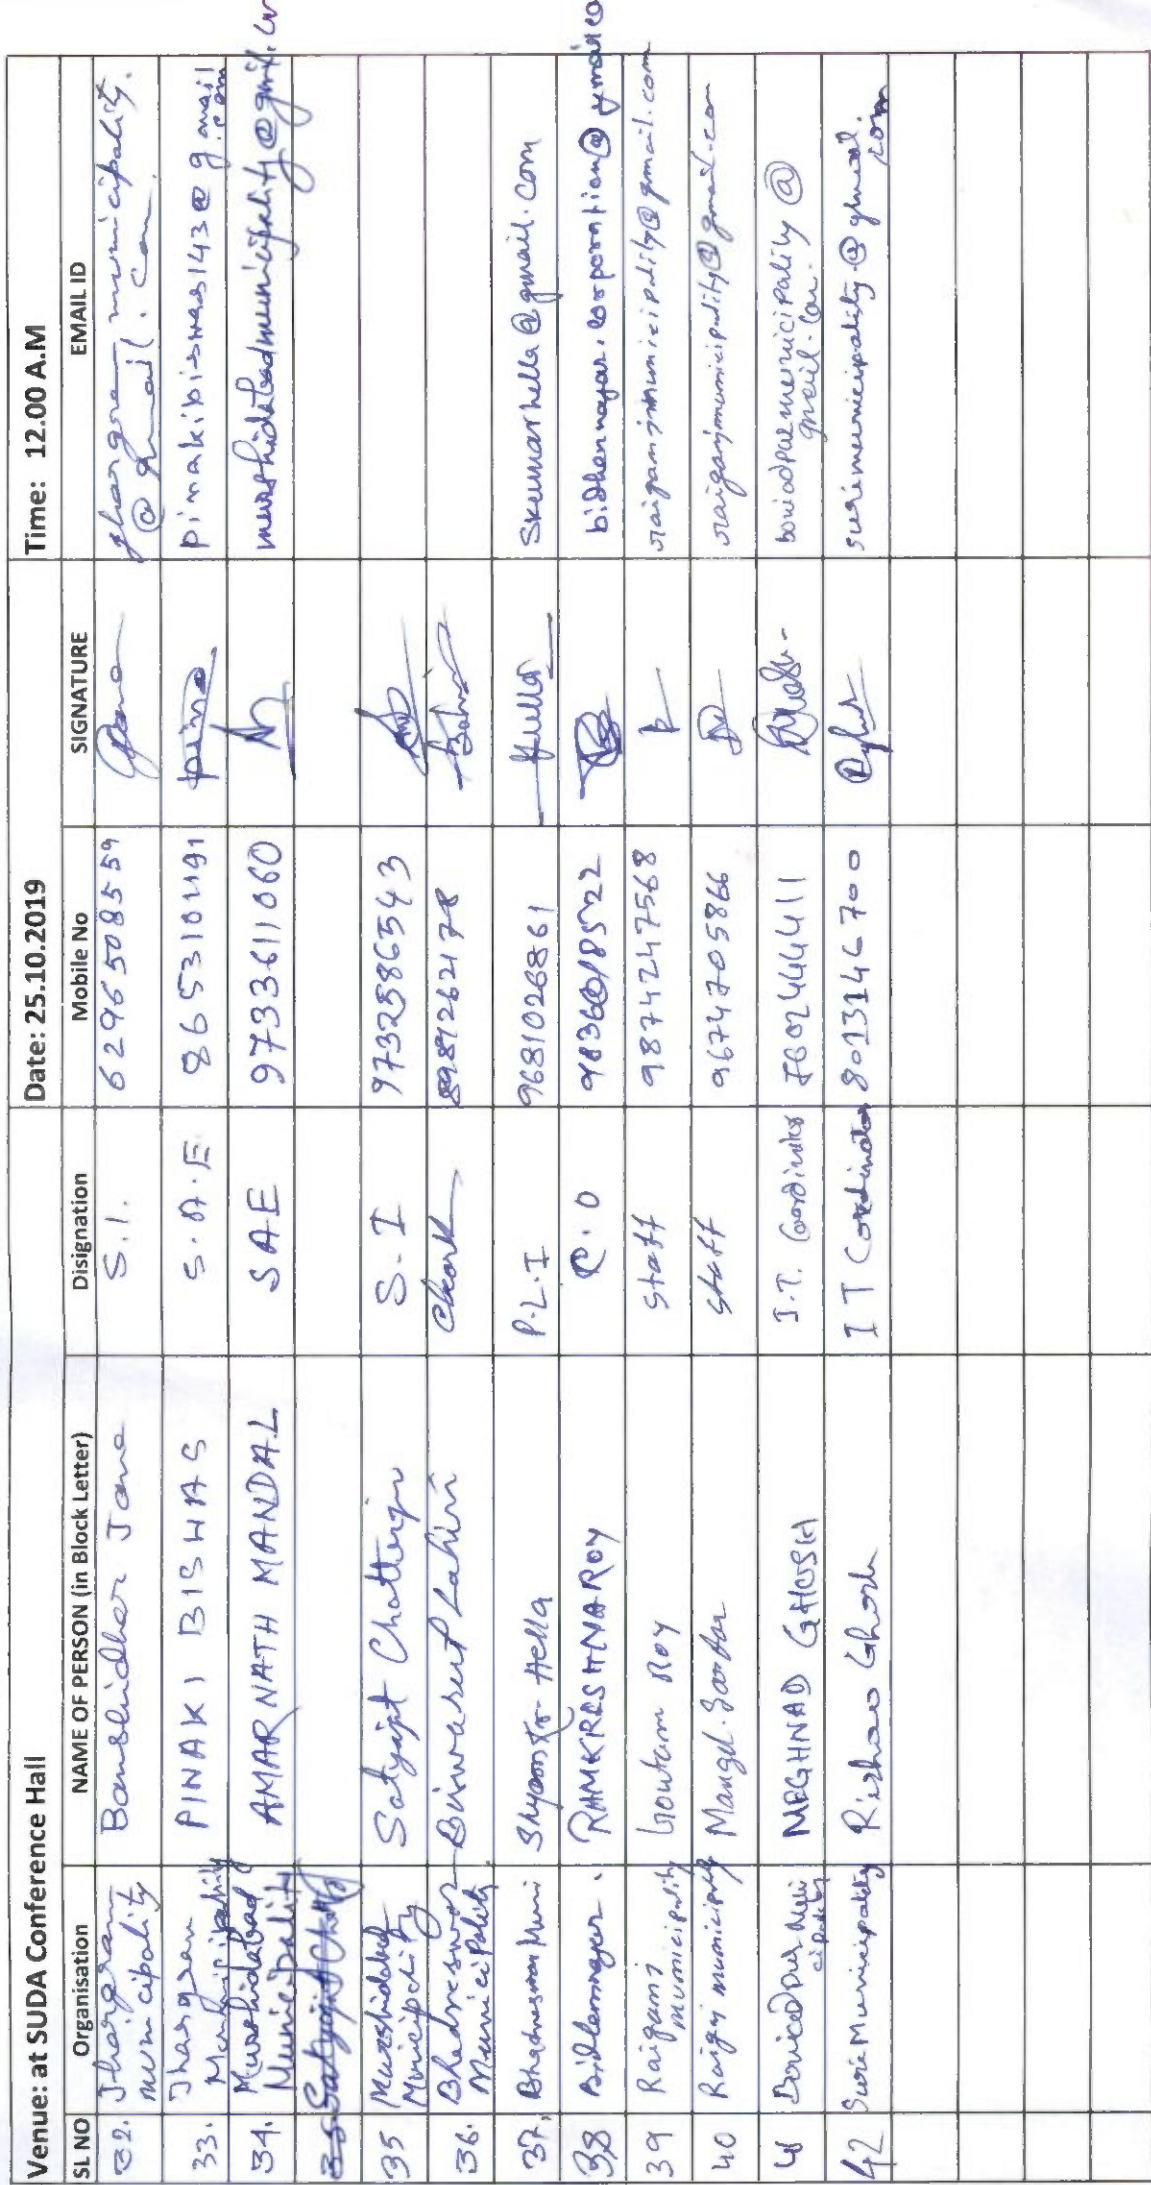 Venue: at SUDA Conference Hall Date: 25.10.2019 Time: 12.00 A.M
SL NO Organisation NAME OF PERSON (in Block Letter) Disignation Mobile No SIGNATURE EMAIL ID
32. Jhargram municipality Banshidhar Jana S.I. 6296508559 jhargram municipality. @ gmail. com
33. Jhargram Municipality PINAKI BISWAS S.A.E 8653101191 pina pinakibiswas143@gmail.com
34. Murshidabad Municipality AMAR NATH MANDAL SAE 9733611060 murshidabadmunicipality@gmil.co
35 Murshidabad Municipality Satyajit Chatterjee S-I 9732586543
36. Bhadreswar Municipality Biswarup Lahiri Clerk 8981262178
37, Bhadreswar Muni Shyamsr Hella P.L.I 9681026861 Hella Skumarhella@gmail.com
38 Bidhannagar. RAMKRISHNA ROY C.O bidhannagar.corporation@gmail.co
39 Raiganj municipality Goutam Roy Staff 9874247568 raiganjmunicipality@gmail.com
40 Raiganj municipality Mangal. Sarkar Staff 9674705866 raiganjmunicipality@gmail.com
41 MEGHNAD GHOSH I.T. Coordinator 7602444411
42 Suri Municipality Rishav Ghosh I T Cordinator 8013146700 surimunicipality@gmail.com